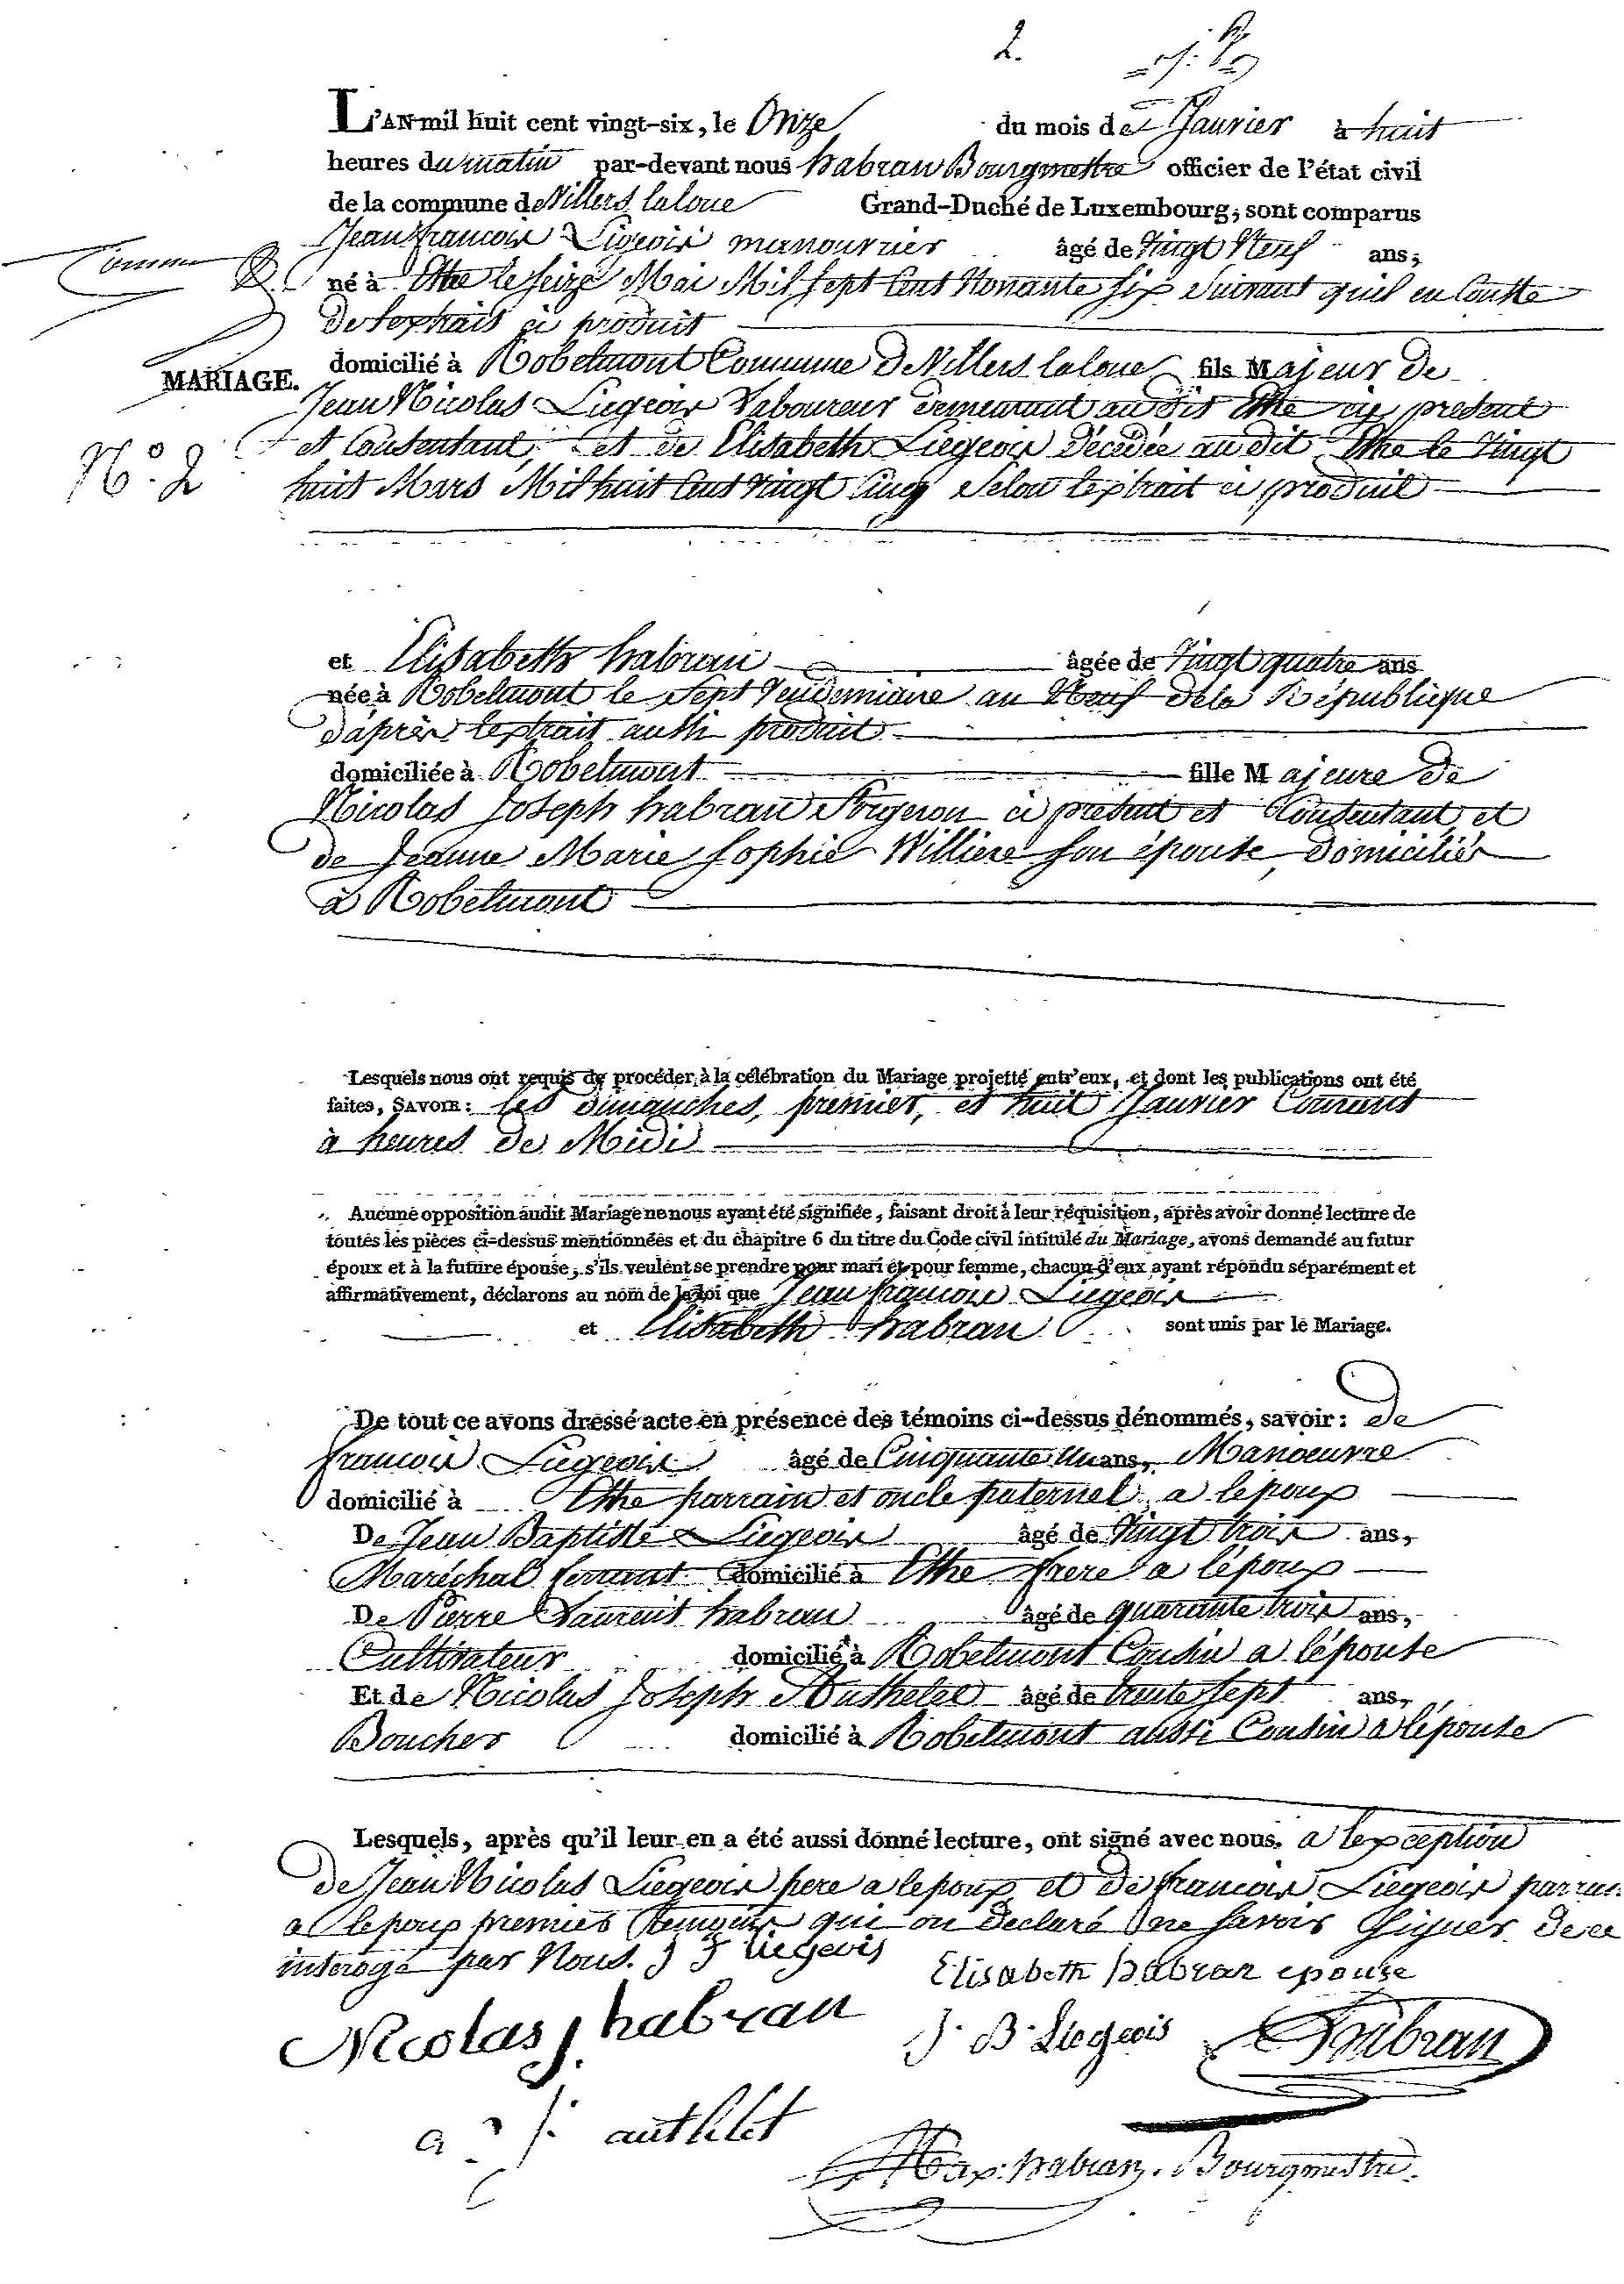 2.
L'AN mil huit cent vingt-six, le Onze du mois de Janvier à huit
heures du matin par-devant nous habran Bourgmestre officier de l'état civil
de la commune de Villers laloue Grand-Duché de Luxembourg, sont comparus
Jean francois Ligeois manouvrier âgé de Vingt Neuf ans,
né à Ethe le seize Mai Mil sept Cent Nonante six suivant quil en Conste
de lextrait ci produit
MARIAGE.
domicilié à Robelmont Commune de Villers laloue fils Majeur de
Jean Nicolas Liegeois Laboureur demeurant au dit Ethe cy present
N.° 2
et Consentant, et de Elisabeth Liegeois décédée au dit Ethe le Vingt
huit Mars Mil huit Cent Vingt Cinq Selon lextrait ci produit
et Elisabeth habran âgée de Vingt quatre ans
née à Robelmont le Sept Vendemiaire an Neuf de la République
d'après lextrait aussi produit
domiciliée à Robelmont fille Majeure de
Nicolas Joseph habran Forgeron ci présent et Consentant, et
de Jeanne Marie Sophie Williere son épouse, domiciliés
à Robelmont
Lesquels nous ont requis de procéder à la célébration du Mariage projetté entr'eux, et dont les publications ont été
faites, SAVOIR: les dimanches, premier, et huit Janvier Courant
à heures de Midi
Aucune opposition audit Mariage ne nous ayant été signifiée, faisant droit à leur réquisition, après avoir donné lecture de
toutes les pièces ci-dessus mentionnées et du chapitre 6 du titre du Code civil intitulé du Mariage, avons demandé au futur
époux et à la future épouse, s'ils veulent se prendre pour mari et pour femme, chacun d'eux ayant répondu séparément et
affirmativement, déclarons au nom de la loi que Jean francois Liegeois
et Elisabeth habran sont unis par le Mariage.
De tout ce avons dressé acte en présence des témoins ci-dessus dénommés, savoir: de
francois Liegeois âgé de Cinquante un ans, Manoeuvre
domicilié à Ethe parrain et oncle paternel a lepoux
De Jean Baptiste Liegeois âgé de Vingt trois ans,
Maréchal ferrant domicilié à Ethe frere a lépoux
De Pierre Laurent habran âgé de quarante trois ans,
Cultivateur domicilié à Robelmont Cousin a lépouse
Et de Nicolas Joseph Authelet âgé de trente sept ans,
Boucher domicilié à Robelmont aussi Cousin a lépouse
Lesquels, après qu'il leur en a été aussi donné lecture, ont signé avec nous. a lexception
de Jean Nicolas Liegeois pere a lepoux, et de francois Liegeois parrain
a lepoux premier temoin qui on declaré ne savoir signer de ce
interogé par Nous. J F liegeois
Elisabeth habran epouse
Nicolas J habran J. B. Liegeois habran
authelet
habran. Bourgmestre.